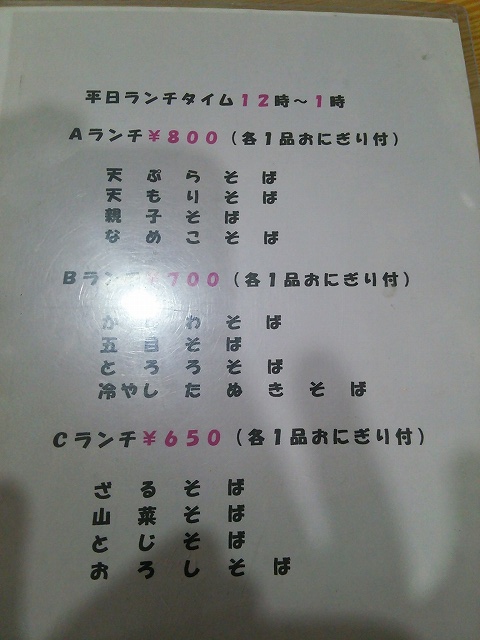 平日ランチタイム12時～1時
Aランチ¥800(各1品おにぎり付)
天ぷらそば
天もりそば
親子そば
なめこそば
Bランチ¥700(各1品おにぎり付)
わそば
五目そば
とろろそば
冷やしたぬきそば
Cランチ¥650(各1品おにぎり付)
ざるそば
山菜そば
とじそば
おろしそば